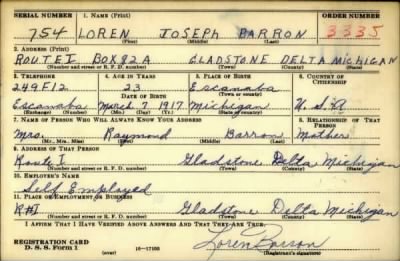 SERIAL NUMBER 1. NAME (Print) ORDER NUMBER
754 LOREN JOSEPH BARRON 3335
(First) (Middle) (Last)
2. ADDRESS (Print)
ROUTE I BOX 82A GLADSTONE DELTA MICHIGAN
(Number and street or R. F. D. number) (Town) (County) (State)
3. TELEPHONE 4. AGE IN YEARS 5. PLACE OF BIRTH 6. COUNTRY OF CITIZENSHIP
249F12 23 Escanaba
DATE OF BIRTH (Town or county)
Escanaba March 7 1917 Michigan U.S.A
(Exchange) (Number) (Mo.) (Day) (Yr.) (State or country)
7. NAME OF PERSON WHO WILL ALWAYS KNOW YOUR ADDRESS 8. RELATIONSHIP OF THAT PERSON
Mrs. Raymond Barron Mother
(Mr., Mrs., Miss) (First) (Middle) (Last)
9. ADDRESS OF THAT PERSON
Route I Gladstone Delta Michigan
(Number and street or R. F. D. number) (Town) (County) (State)
10. EMPLOYER'S NAME
Self Employed
11. PLACE OF EMPLOYMENT OR BUSINESS
R#1 Gladstone Delta Michigan
(Number and street or R. F. D. number) (Town) (County) (State)
I AFFIRM THAT I HAVE VERIFIED ABOVE ANSWERS AND THAT THEY ARE TRUE.
REGISTRATION CARD
D. S. S. Form 1 (over) 16—17105 Loren Barron
(Registrant's signature)